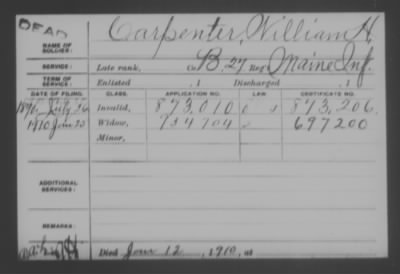 DEAD
NAME OF SOLDIER: Carpenter, William H.
SERVICE: Late rank, Co. B. 27 Reg't Maine Inf.
TERM OF SERVICE: Enlisted , 1 Discharged , 1
DATE OF FILING. CLASS. APPLICATION NO. LAW. CERTIFICATE NO.
July 26 Invalid, 873,010 873,206
1910 Jan 25 Widow, 697200
Minor,
ADDITIONAL SERVICES:
REMARKS:
Died Jan 12, 1910, at